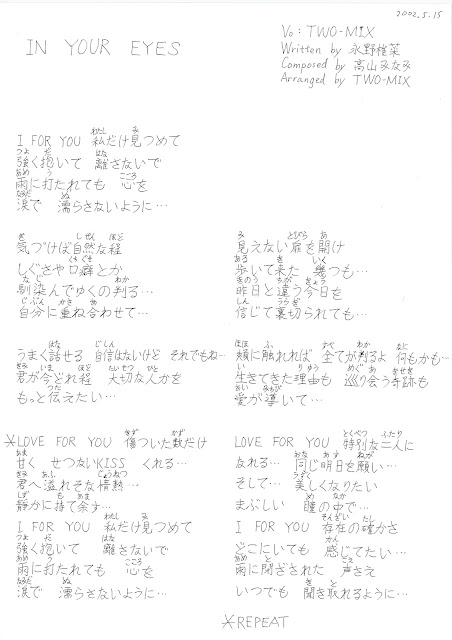 2002.5.15
IN YOUR EYES
Vo: TWO-MIX
Written by 永野椎菜
Composed by 高山みなみ
Arranged by TWO-MIX
I FOR YOU 私だけ見つめて
強く抱いて 離さないで
雨に打たれても 心を
涙で 濡らさないように…
気づけば自然な程
しぐさや口癖とか
馴染んでゆくの判る…
自分に重ね合わせて…
うまく話せる 自信はないけど それでもね…
君が今どれ程 大切な人かを
もっと伝えたい…
*LOVE FOR YOU 傷ついた数だけ
甘く せつないKISS くれる…
君へ溢れそな情熱…
静かに持て余す…
I FOR YOU 私だけ見つめて
強く抱いて 離さないで
雨に打たれても 心を
涙で 濡らさないように…
見えない扉を開け
歩いて来た 幾つも…
昨日と違う今日を
信じて裏切られても…
頬に触れれば 全てが判るよ 何もかも…
生きてきた理由も 巡り会う奇跡も
愛が導いて…
LOVE FOR YOU 特別な二人に
なれる… 同じ明日を願い…
そして… 美しくなりたい
まぶしい 瞳の中で…
I FOR YOU 存在の確かさ
どこにいても 感じてたい…
雨に閉ざされた 声さえ
いつでも 聞き取れるように…
*REPEAT